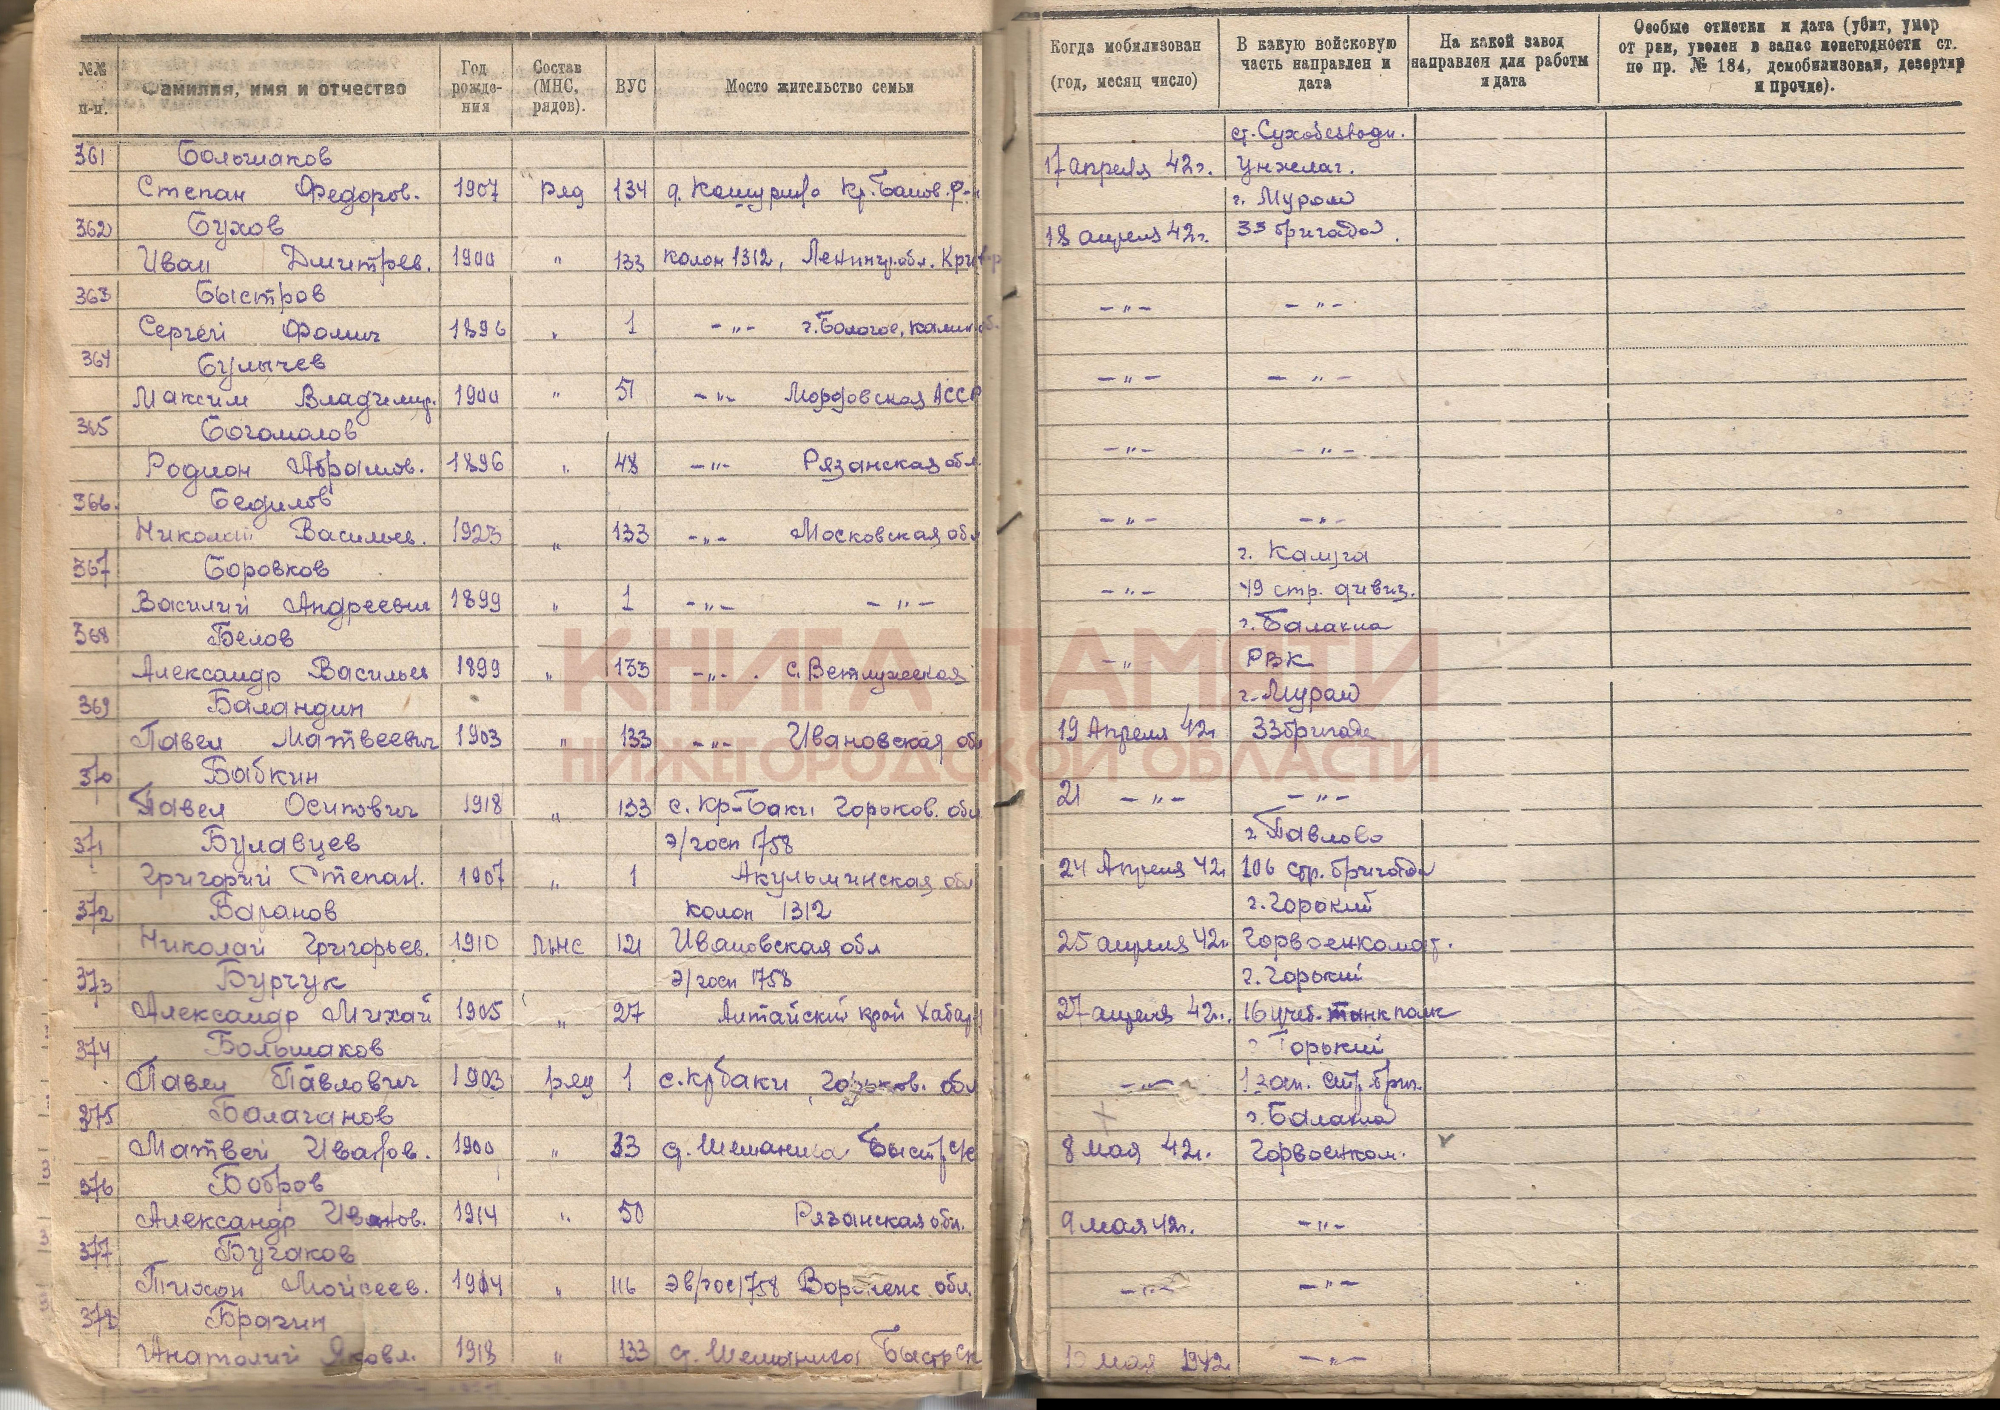 №№ п-п.
Фамилия, имя и отчество
Год рожде-ния
Состав (МНС, рядов).
ВУС
Место жительство семьи
Когда мобилизован (год, месяц число)
В какую войсковую часть направлен и дата
На какой завод направлен для работы и дата
Особые отметки и дата (убит, умер от ран, уволен в запас понегодности ст. по пр. № 184, демобилизован, дезертир и прочие).
ст. Сухобезводн.
361 Большаков 17 апреля 42г. Унжлаг.
Степан Федоров. 1907 ряд 134 д. Кр. Баков. р-н г. Муром
362 Бухов 18 апреля 42г. 33 бригада
Иван Дмитрев. 1900 " 133 колон 1312, Ленингр. обл.
363 Быстров - " - - " -
Сергей Фомич 1896 " 1 - " - г. Бологое, калин об.
364 Булычев - " - - " -
Максим Владимир. 1900 " 51 - " - Мордовская АССР
365 Богомолов - " - - " -
Родион Абрамов. 1896 " 48 - " - Рязанская обл
366. Бедилов - " - - " -
Николай Васильев. 1923 " 133 - " - Московская обл
г. Калуга
367 Боровков - " - 49 стр. дивиз.
Василий Андреевич 1899 " 1 - " - - " -
г. Балахна
368 Белов - " РВК
Александр Васильев 1899 " 133 - " - . с. Ветлужская
г. Муром
369 Баландин 19 Апреля 42г 33 бригада
Павел Матвеевич 1903 " 133 - " - Ивановская обл
370 Бабкин 21 - " - - " -
Павел Осипович 1918 " 133 с. Кр-Баки Горьков. обл
г. Павлово
371 Булавцев э/госп 1758 24 Апреля 42г 106 стр. бригада
Григорий Степан. 1907 " 1 Акульминская обл
г. Горький
372 Баранов колон 1312 25 апреля 42г. Горвоенкомат.
Николай Григорьев. 1910 мнс 121 Ивановская обл
г. Горький
373 Бурчук э/госп 1758 27 апреля 42г. 16 учеб. танк полк
Александр Михай 1905 " 27 Алтайский край
Горький
374 Большаков - " - 1 зап. стр. бриг.
Павел Павлович 1903 ряд 1 с. Крбаки, Горьков. обл
г. Балахна
375 Балаганов 8 мая 42г. Горвоенком.
Матвей 1900 " 33 д. Шеманиха
376 Бобров 9 мая 42г. - " -
Александр Иванов. 1914 " 50 Рязанская обл.
377 Бугаков - " - - " -
Тихон Мойсеев. 1904 " 116 эв/гос 1758 обл.
378 Брагин мая 1942г - " -
Анатолий Яковл. 1918 " 133 д. Шеманиха
КНИГА ПАМЯТИ
НИЖЕГОРОДСКОЙ ОБЛАСТИ